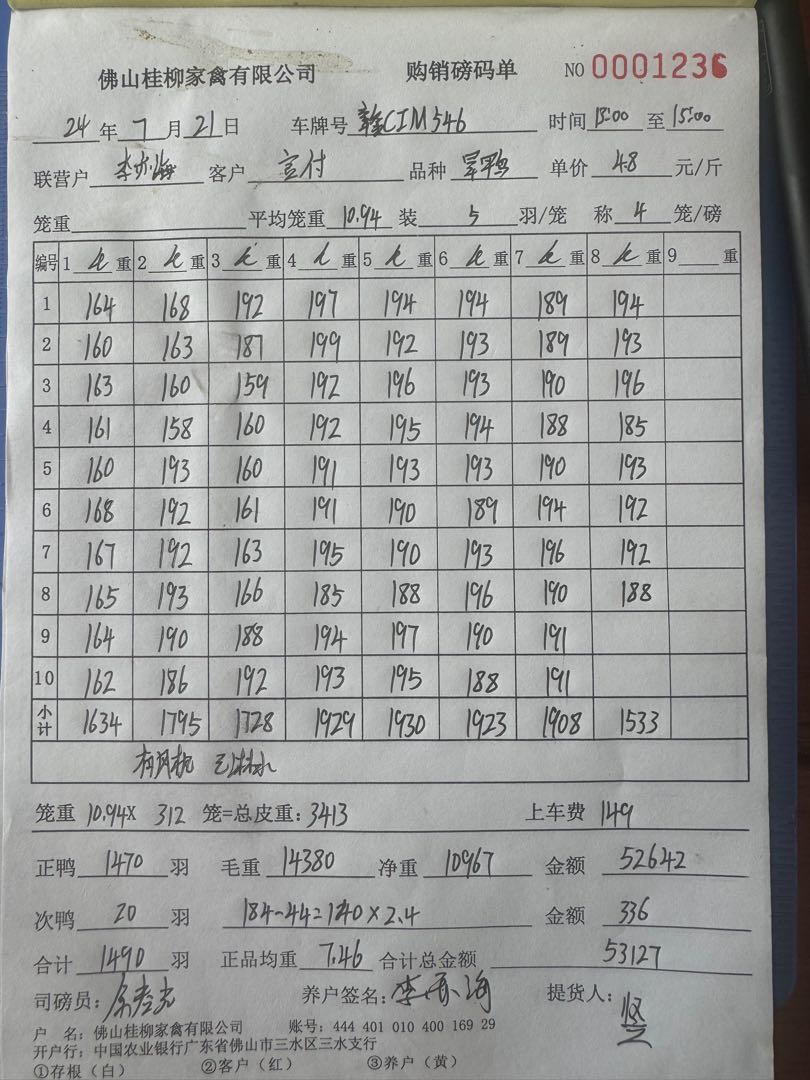 佛山桂柳家禽有限公司 购销磅码单 NO 0001236
24年7月21日 车牌号 赣CIM546 时间 13:00 至 15:00
联营户 客户 宣付 品种 旱鸭 单价 4.8 元/斤
笼重 平均笼重 10.94 装 5 羽/笼 称 4 笼/磅
编号 1 重 2 重 3 重 4 重 5 重 6 重 7 重 8 重 9 重
1 164 168 192 197 194 194 189 194
2 160 163 187 199 192 193 189 193
3 163 160 159 192 196 193 190 196
4 161 158 160 192 195 194 188 185
5 160 193 160 191 193 193 190 193
6 168 192 161 191 190 189 194 192
7 167 192 163 195 190 193 196 192
8 165 193 166 185 188 196 190 188
9 164 190 188 194 197 190 191
10 162 186 192 193 195 188 191
小计 1634 1795 1728 1929 1930 1923 1908 1533
笼重 10.94X 312 笼=总皮重:3413 上车费 149
正鸭 1470 羽 毛重 14380 净重 10967 金额 52642
次鸭 20 羽 184-44=140×2.4 金额 336
合计 1490 羽 正品均重 7.46 合计总金额 53127
司磅员: 养户签名: 提货人:
户 名:佛山桂柳家禽有限公司 账号:444 401 010 400 169 29
开户行:中国农业银行广东省佛山市三水区三水支行
①存根(白) ②客户(红) ③养户(黄)